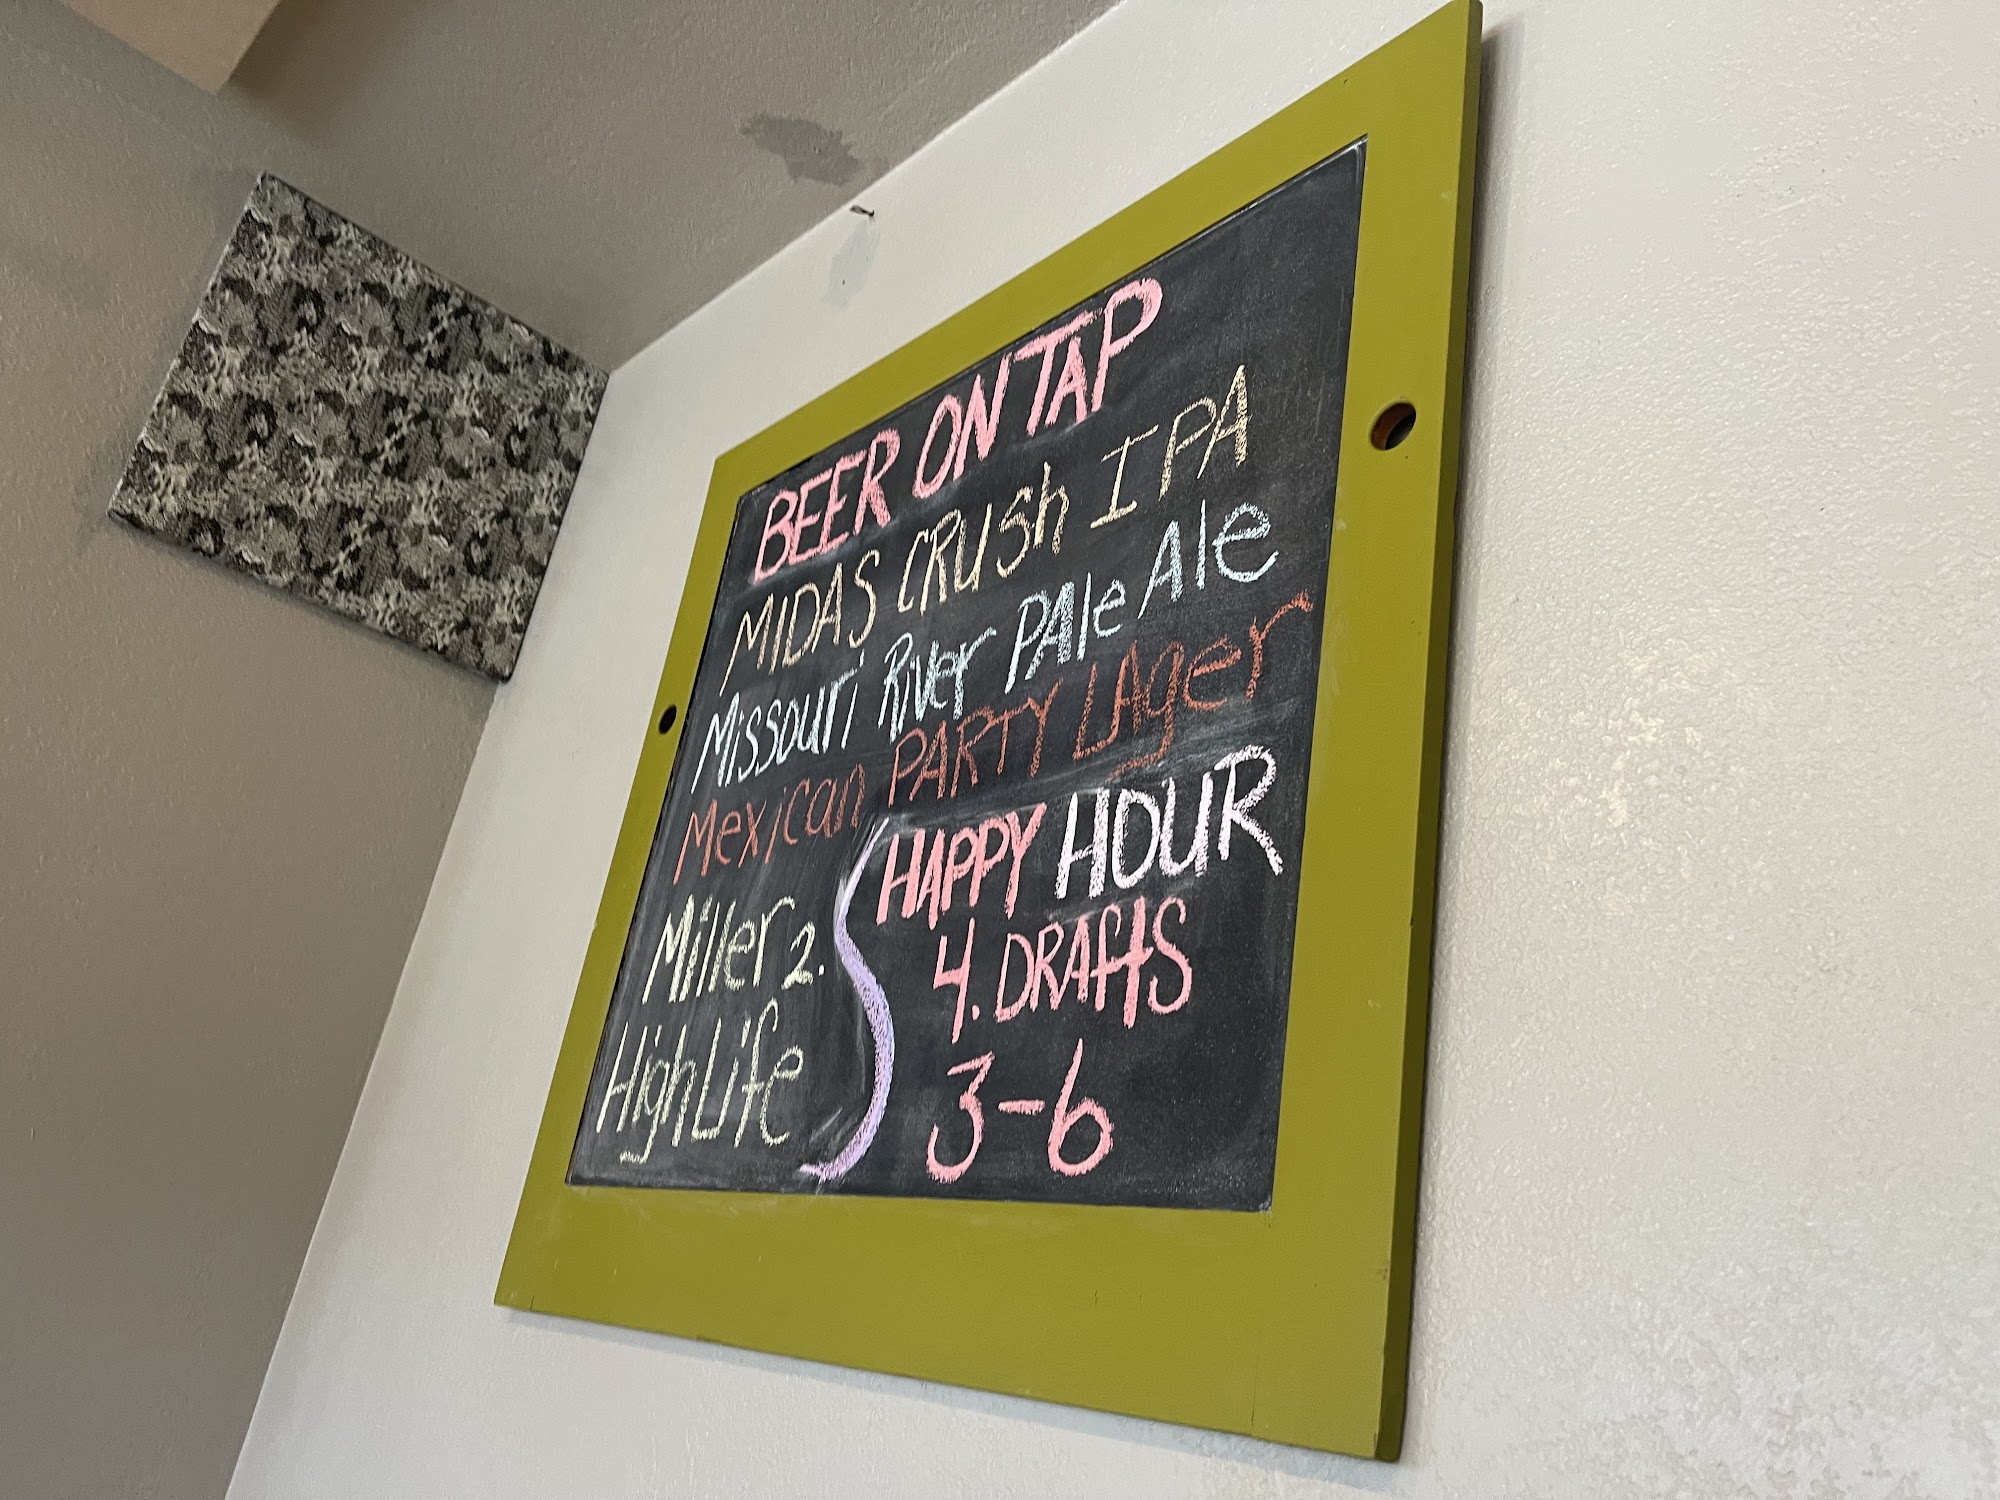 BEER ON TAP
MIDAS CRUSh IPA
Missouri River PAle Ale
Mexican PARTY LAger
Miller 2.
High Life
HAPPY HOUR
4. DRAftS
3-6